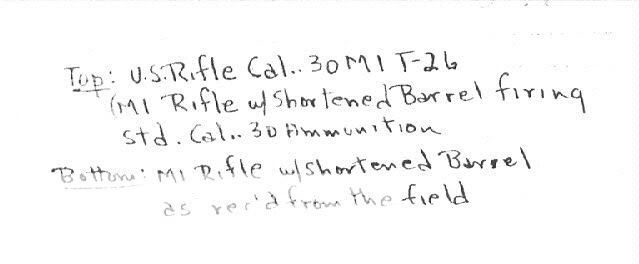 Top: U.S. Rifle Cal..30 M1 T-26
(M1 Rifle w/ Shortened Barrel firing
std. Cal..30 Ammunition
Bottom: M1 Rifle w/shortened Barrel
as rec'd from the field